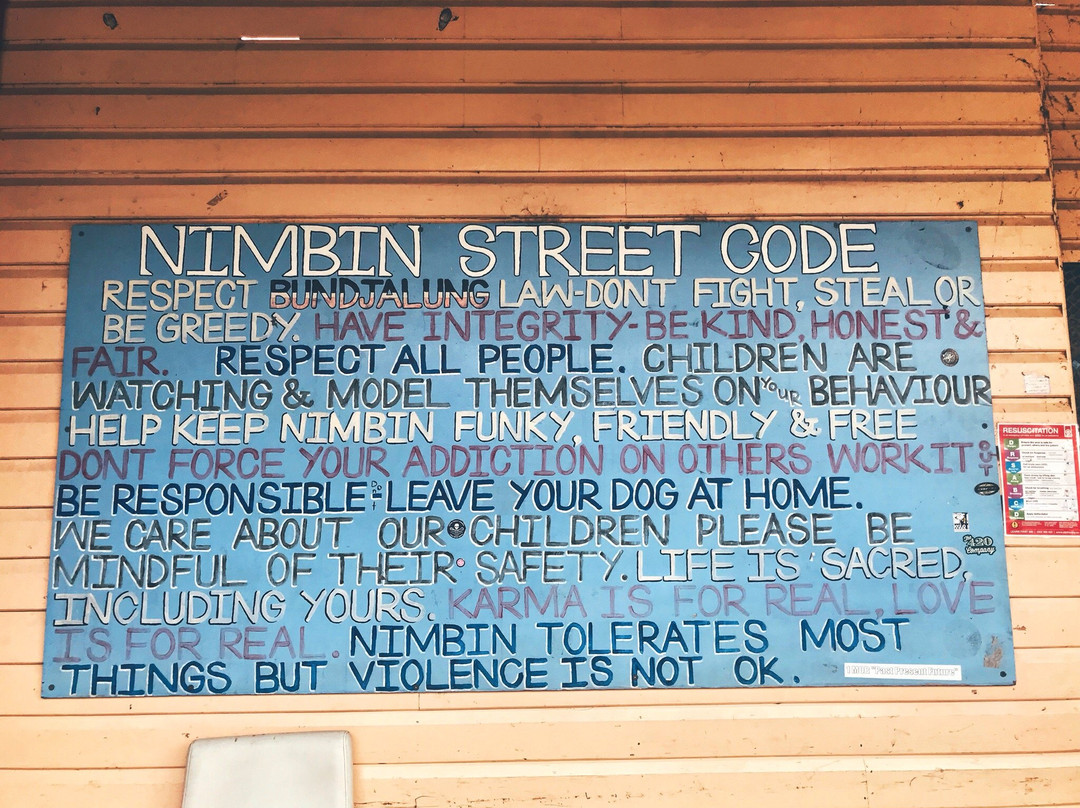 NIMBIN STREET CODE
RESPECT BUNDJALUNG LAW-DONT FIGHT, STEAL OR
BE GREEDY. HAVE INTEGRITY-BE KIND, HONEST &
FAIR. RESPECT ALL PEOPLE. CHILDREN ARE
WATCHING & MODEL THEMSELVES ON YOUR BEHAVIOUR
HELP KEEP NIMBIN FUNKY, FRIENDLY & FREE
DONT FORCE YOUR ADDICTION ON OTHERS WORK IT OUT
BE RESPONSIBLE LEAVE YOUR DOG AT HOME.
WE CARE ABOUT OUR CHILDREN PLEASE BE
MINDFUL OF THEIR SAFETY. LIFE IS SACRED,
INCLUDING YOURS. KARMA IS FOR REAL, LOVE
IS FOR REAL. NIMBIN TOLERATES MOST
THINGS BUT VIOLENCE IS NOT OK.
"Past Present Future"
The 420 Company
RESUSCITATION
D
R
S
A
B
C
D